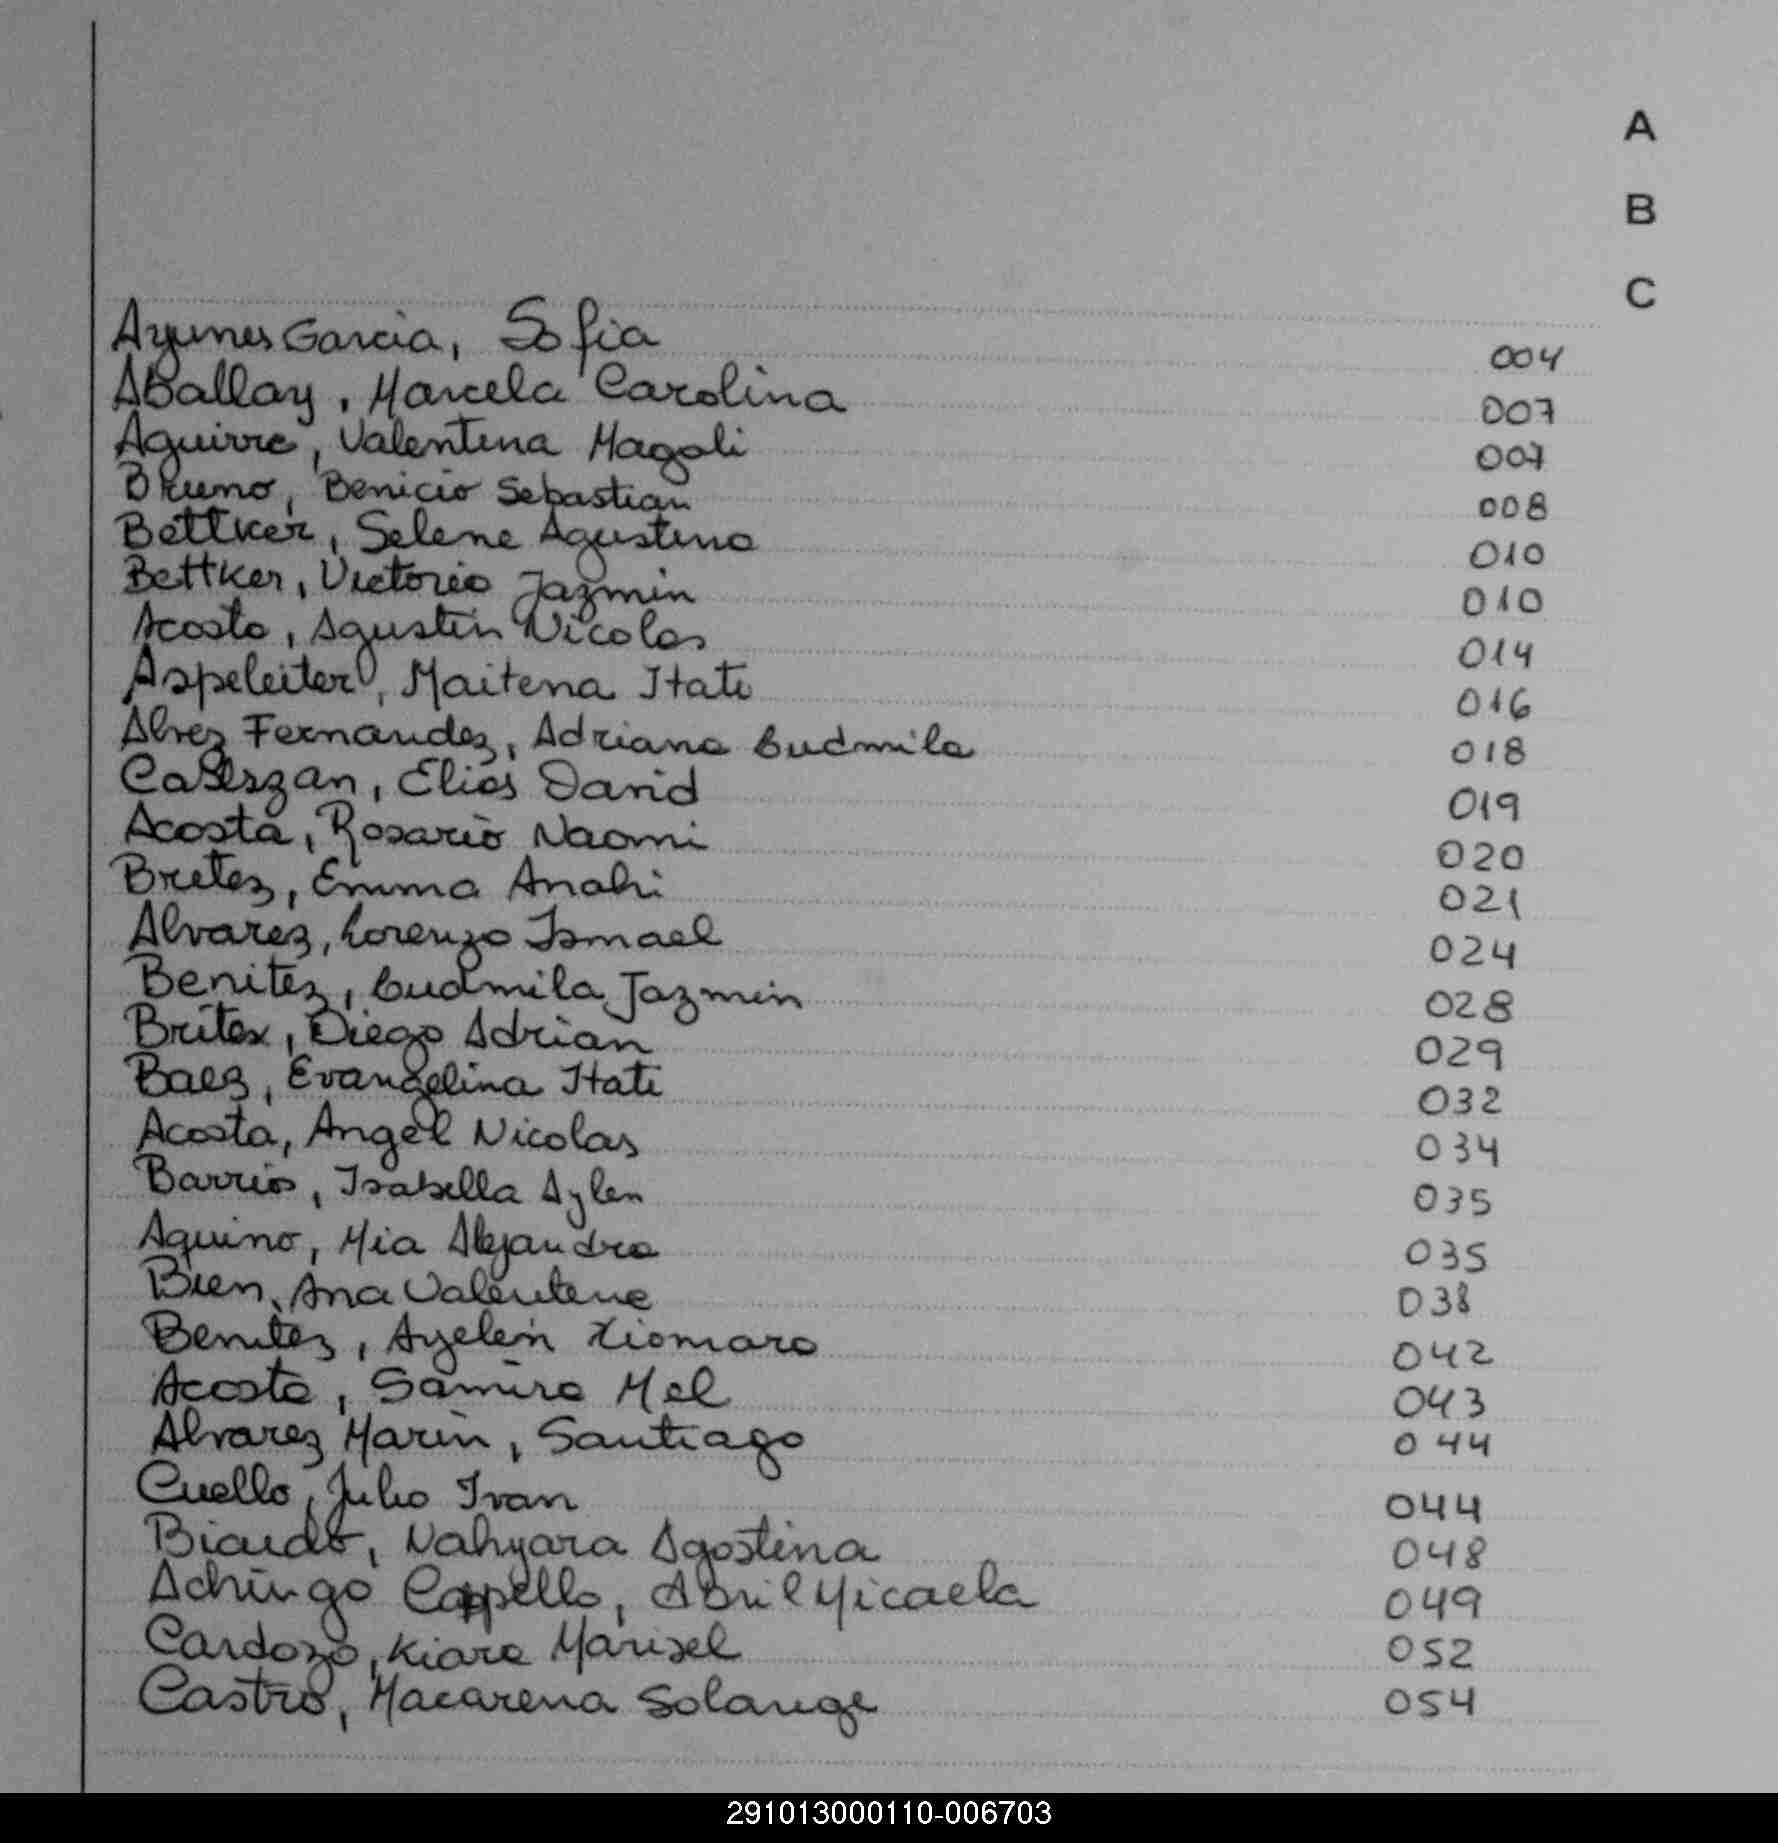 A
B
C
Ayunes Garcia, Sofia 004
Aballay, Marcela Carolina 007
Aguirre, Valentina Magali 007
Bruno, Benicio Sebastian 008
Bettker, Selene Agustina 010
Bettker, Victoria Jazmin 010
Acosta, Agustin Nicolas 014
Aspeleiter, Maitena Itati 016
Alvez Fernandez, Adriana Ludmila 018
Elias David 019
Acosta, Rosario Naomi 020
Bretez, Emma Anahi 021
Alvarez, Lorenzo Ismael 024
Benitez, Ludmila Jazmin 028
Britez, Diego Adrian 029
Baez, Evangelina Itati 032
Acosta, Angel Nicolas 034
Barrios, Isabella Aylen 035
Aquino, Mia Alejandra 035
Bien, Ana Valentina 038
Benitez, Ayelén Xiomara 042
Acosta, Samira Mel 043
Alvarez Marin, Santiago 044
Cuello, Julio Ivan 044
Nahyara Agostina 048
Achingo Cappello, Abril Micaela 049
Cardozo, Kiara Marisel 052
Castro, Macarena Solange 054
291013000110-006703